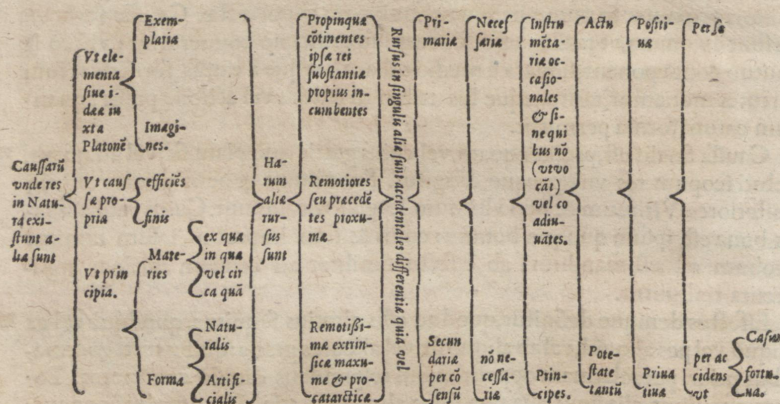 Caussarũ
vnde res
in Natu-
ra exi-
stunt a-
liæ sunt
Vt ele-
menta
siue i-
deæ iu
xta
Platonẽ
Exem-
plaria
Imagi-
nes.
Vt caus
sæ pro-
priæ
efficiẽs
finis
Vt prin
cipia.
Mate-
ries
ex qua
in qua
vel cir
ca quã
Forma
Natu-
ralis
Artifi-
cialis
Ha-
rum
aliæ
rur-
sus
sunt
Propinquæ
cõtinentes
ipsæ rei
substantiæ
propius in-
cumbentes
Remotiores
seu præcedẽ
tes proxu-
mæ
Remotißi-
mæ extrin-
sicæ maxu-
me & pro-
catarcticæ
Rursus in singulis aliæ sunt accidentales differentiæ quia vel
Pri-
mariæ
Secun
dariæ
per cõ
sensũ
Necess
sariæ
nõ ne-
cessa-
riæ
Instru
mẽta-
riæ oc-
casio-
nales
& si-
ne qui
bus nõ
(vt vo
cãt)
vel co
adiu-
uãtes.
Prin-
cipes.
Actu
Pote-
state
tantũ
Positi-
uæ
Priua
tiuæ
Per se
per ac
cidens
vt
Casus
fortu-
na.